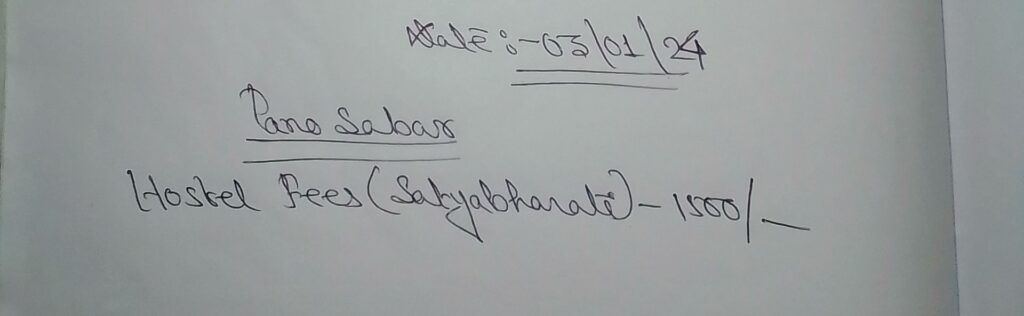 Date :- 03/01/24
Pano Sabar
Hostel Fees (Satyabharati) - 1500/-